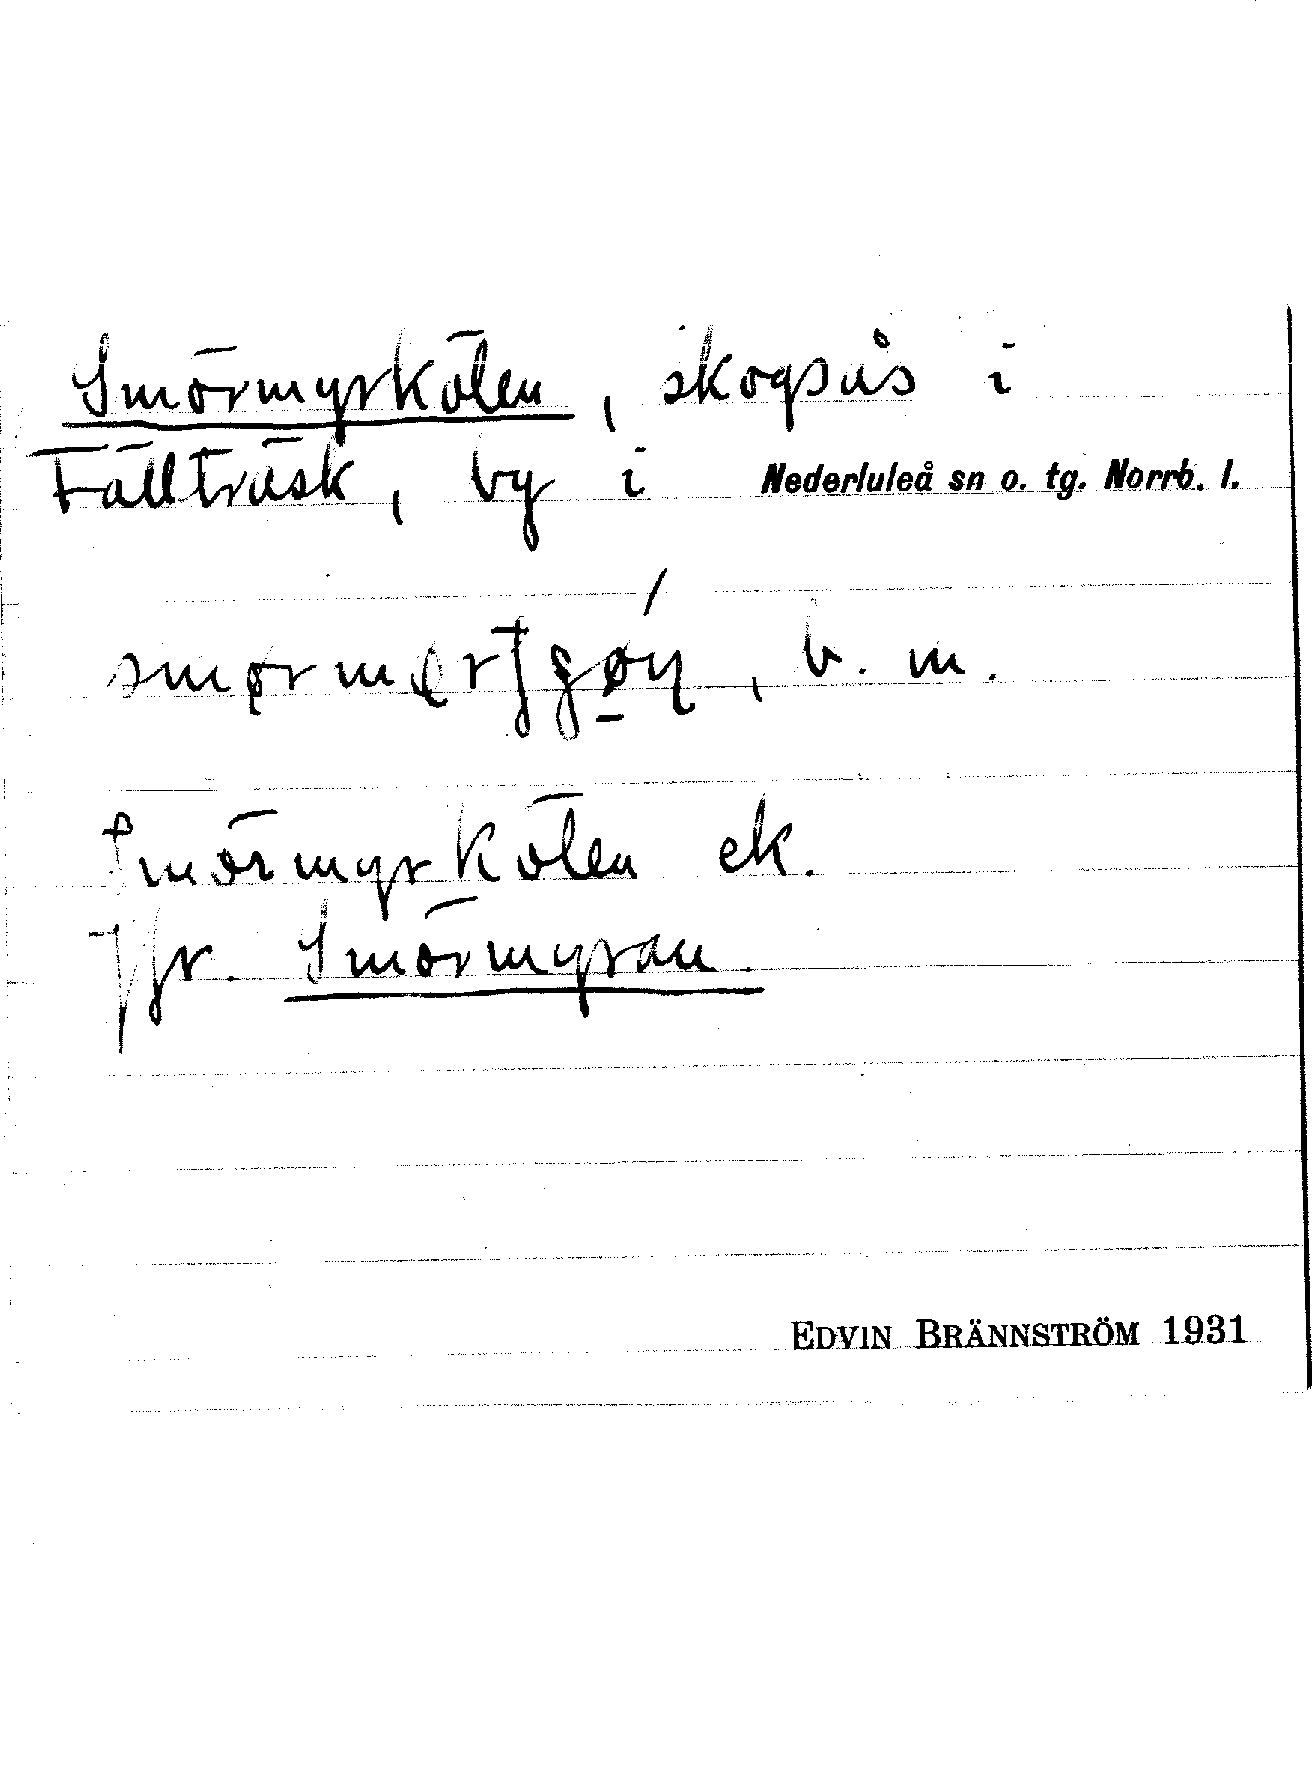 Smörmyrkölen, skogsås i
Fällträsk, by i Nederluleå sn o. tg. Norrb. l.
b. m.
Smörmyrkölen ek.
Jfr. Smörmyran.
EDVIN BRÄNNSTRÖM 1931